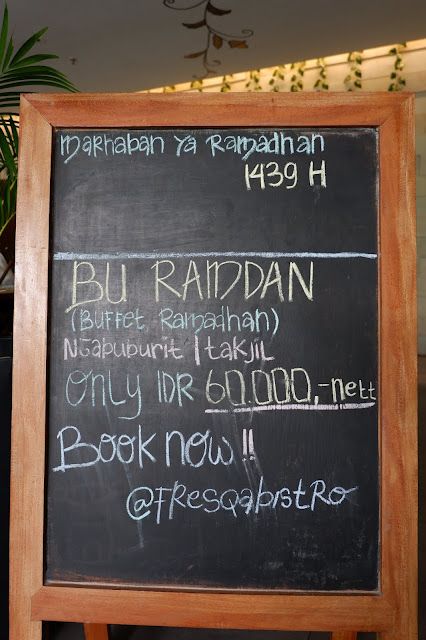 Marhaban Ya Ramadhan
1439 H
BU RAMDAN
(Buffet Ramadhan)
Ngabuburit | takjil
Only IDR 60.000,-nett
Book now !!
@fresqabistro